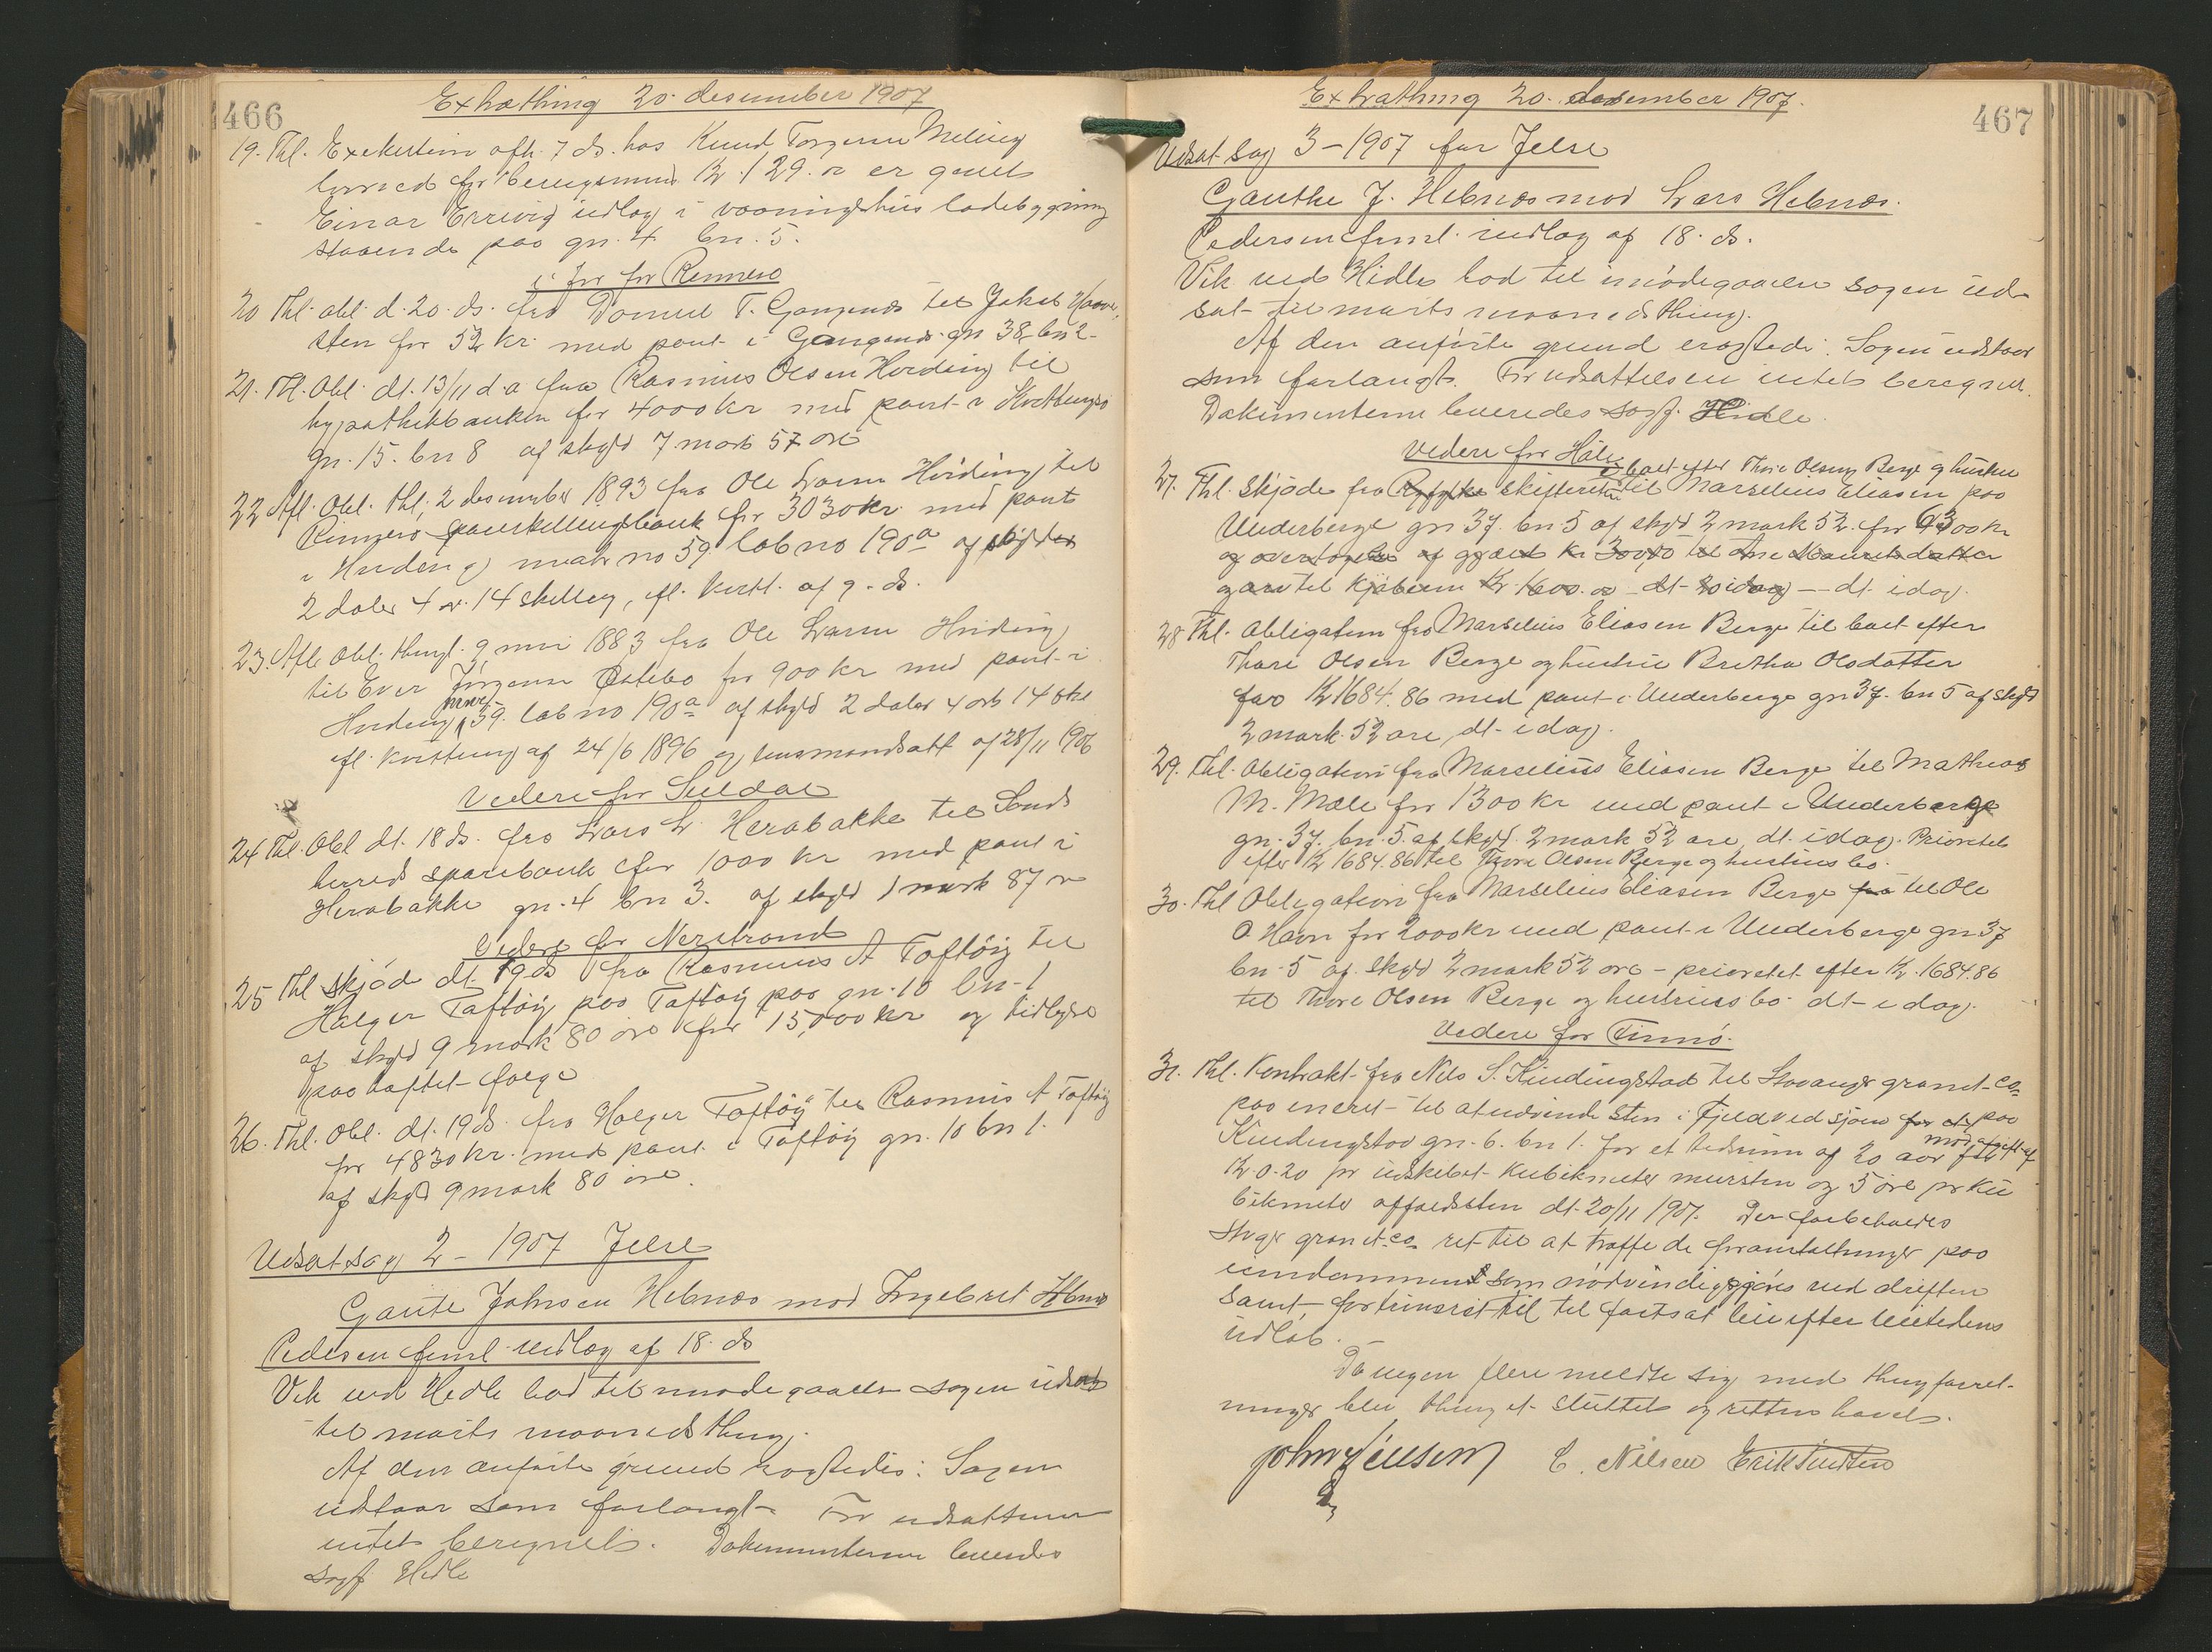 466
Extrathing 20. desember 1907
19. Thl. Exekution afh. 7 ds. hos Knud Torgersen Meling
hvorved for Kr. 129. er givet
Einar Erevig udlæg i vaaningshus ladebygning
staaende paa gn. 4 bn. 5.
for Rennesø
20 Thl. obl. d. 20. ds. fra T. til Jakob
sten for 52 kr. med pant i gn 38 bn 2
21. Thl. Obl. dt. 13/11 d.a fra Rasmus Olsen Hviding til
hypothekbanken for 4000 kr med pant i
gn. 15. bn 8 af skyld 7 mark 57 øre
22 Afl. Obl. thl. 2 desember 1893 fra Ole Larsen Hviding til
Rennesø sparebank for 3030 kr. med pant
i Hviding matr no 59 løb no 190a af skyld
2 daler 4 ort 14 skilling, efl. kvitt. af 9. ds.
23. Afl. Obl. thingl. 9 mai 1883 fra Ole Larsen Hviding
til Ever Jørgensen Østebø for 900 kr med pant i
Hviding matr 59. løb no 190a af skyld 2 daler 4 ort 14 sk
efl. kvittering af 24/6 1896 og lensmandsatt af 28/11 1906
Videre for Suldal
24 Thl. Obl dt. 18 ds. fra Lars L. Herabakke til Sands
herreds sparebank for 1000 kr med pant i
Herabakke gn. 4 bn 3. af skyld 1 mark 87 øre
Videre for Nerstrand
25 Thl skjøde dt. 19 ds fra Rasmus A Toftøy til
Holger Toftøy paa Toftøy paa gn. 10 bn. 1
af skyld 9 mark 80 øre for 15,000 kr og
paahæftet
26. Thl. Obl. dt. 19 ds. fra Holger Toftøy til Rasmus A Toftøy
for 4830 kr. med pant i Toftøy gn. 10 bn 1.
af skyld 9 mark 80 øre.
Udsat sag 2 - 1907 Jelse
Gaute Johnsen Hebnæs mod Ingebret Hebnæs
Pedersen freml. indlæg af 18. ds
Vik ved Hidle bad til imødegaaelse sagen udsat
til marts maanedsthing.
Af den anførte grund eragtedes: Sagen
udstaar som forlangt. For udsættelsen
intet beregnet. Dokumenterne leveredes
sagf Hidle
467
Extrathing 20. desember 1907.
Udsat sag 3 - 1907 for Jelse
Gauthe J. Hebnæs mod Lars Hebnæs.
Pedersen freml. indlæg af 18. ds.
Vik ved Hidle bad til imødegaaelse sagen ud-
sat til marts maanedsthing.
Af den anførte grund eragtedes: Sagen udstaar
som forlangt. For udsættelsen intet beregnet.
Dokumenterne leveredes sagf. Hidle.
Videre for
i boet efter Thore Olsen Berge og hustru
27. Thl. skjøde fra Ryfylke skifteret til Marselius Eliasen paa
Underberge gn 37. bn 5 af skyld 2 mark 52. for 6300 kr
og overtagelse af gjæld kr 3000
til kjøbesum kr. 1600.00 dt. idag dt. idag.
28 Thl. Obligation fra Marselius Eliasen Berge til boet efter
Thore Olsen Berge og hustru Bertha Olsdatter
for kr 1684.86 med pant i Underberge gn 37. bn 5 af skyld
2 mark 52 øre, dt. idag.
29. Thl. Obligation fra Marselius Eliasen Berge til Mathias
M. Mæle for 1300 kr med pant i Underberge
gn. 37. bn. 5. af skyld. 2 mark 52 øre, dt. idag. Prioritet
efter kr 1684.86 til Thore Olsen Berge og hustrus bo.
30. Thl Obligation fra Marselius Eliasen Berge fra til Ole
O Havn for 2000 kr med pant i Underberge gn 37
bn. 5 af skyld 2 mark 52 øre - prioritet efter kr. 1684.86
til Thore Olsen Berge og hustrus bo. dt. idag.
Videre for Finnø.
31. Thl. Kontrakt fra Nils S. Kindingstad til Stavanger granit-co
paa eneret til at udvinde sten i fjeld ved sjøen for at paa
Kindingstad gn. 6. bn 1. for et tidsrum af 20 aar mod afgift af
kr. 0.20 pr udskibet kubikmeter mursten og 5 øre pr ku
bikmeter affaldssten dt. 20/11 1907. Der forbeholdes
Stvgr granit co ret til at træffe de foranstaltninger paa
eiendommen som nødvendiggjøres ved driften
samt fortrinsret til til fortsat leie efter leietidens
udløb.
Da ingen flere meldte sig med thingforret-
ninger blev thinget sluttet og retten hævet.
John Jensen E. Nilsen Erik Knutsen